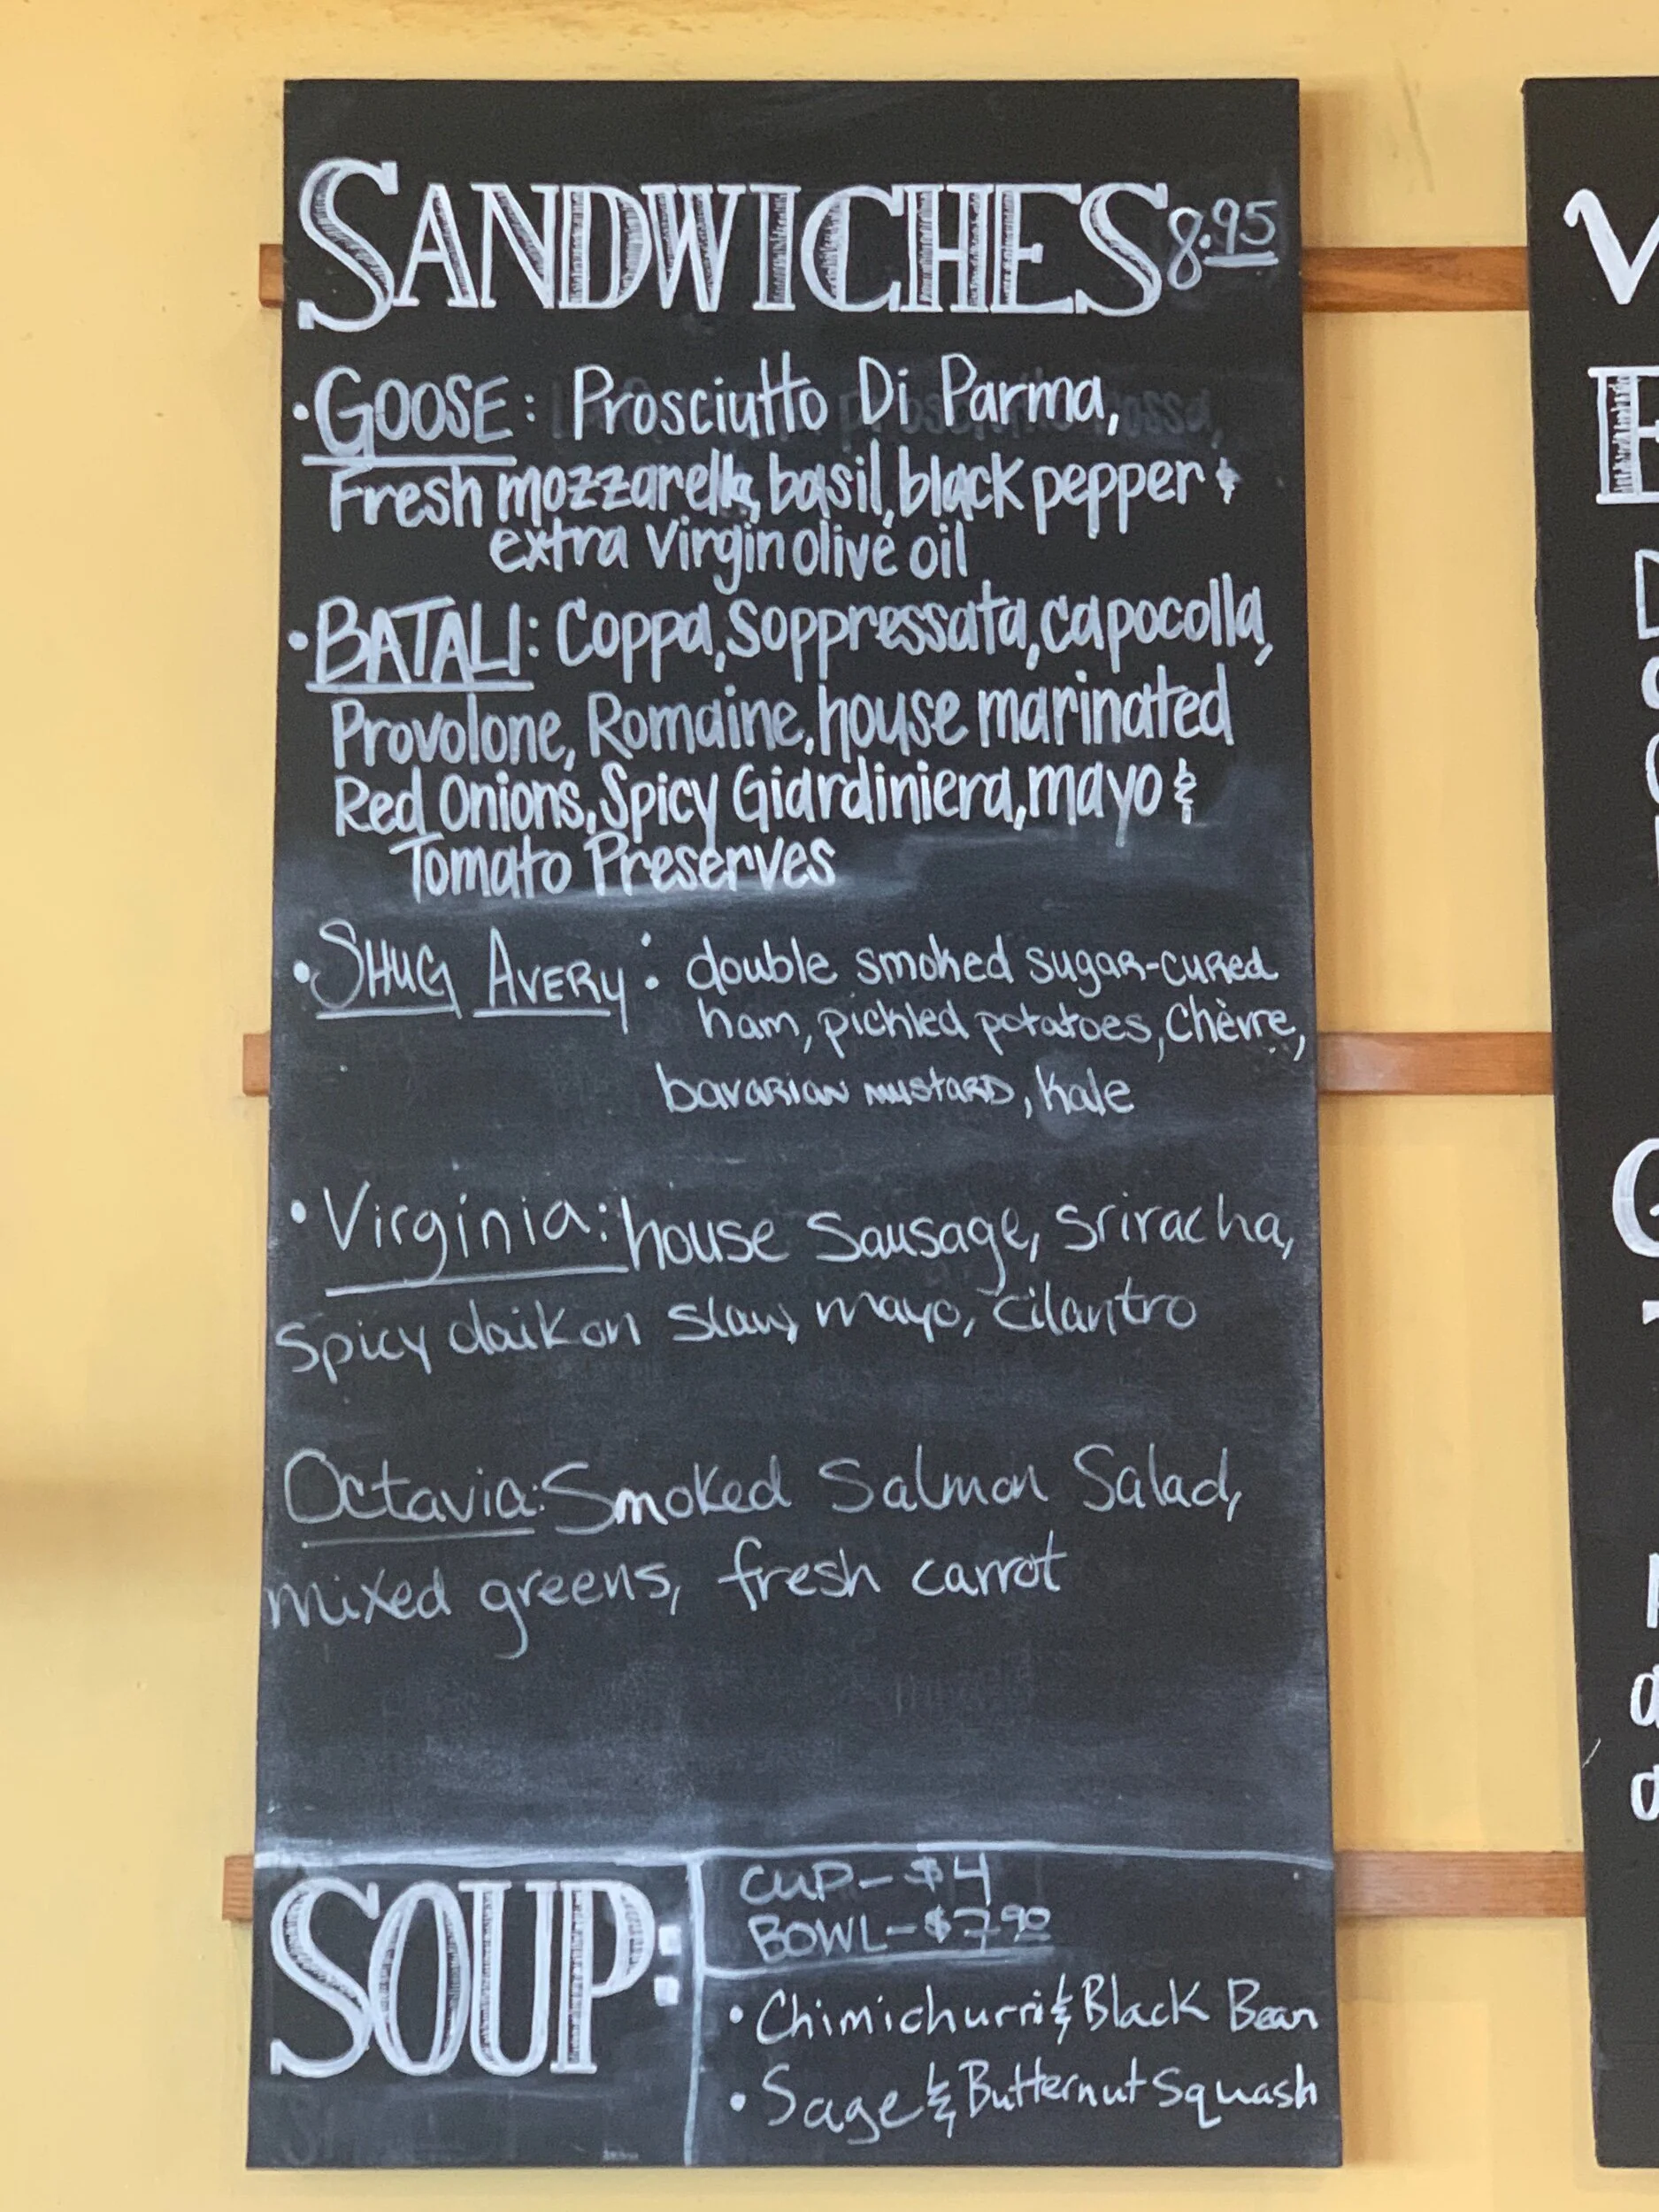 SANDWICHES 8.95
• GOOSE: Prosciutto Di Parma,
Fresh mozzarella, basil, black pepper &
extra Virgin olive oil
• BATALI: Coppa, Soppressata, capocolla,
Provolone, Romaine, house marinated
Red Onions, Spicy Giardiniera, mayo &
Tomato Preserves
• SHUG AVERY: double smoked sugar-cured
ham, pickled potatoes, Chèvre,
bavarian mustard, kale
• Virginia: house Sausage, Sriracha,
Spicy daikon Slaw, mayo, cilantro
Octavia: Smoked Salmon Salad,
mixed greens, fresh carrot
SOUP:
CUP - $4
BOWL - $7.90
• Chimichurri & Black Bean
• Sage & Butternut Squash